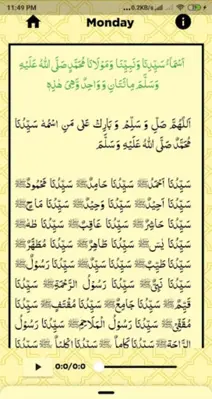 11:49 PM
...0.2KB/s
Monday
اَسْمَآءُ سَيِّدِنَا وَنَبِيِّنَا وَمَوْلَانَا مُحَمَّدٍ صَلَّى اللهُ عَلَيْهِ
وَسَلَّمَ مِائَتَانِ وَ وَاحِدٌ وَّهِيَ هٰذِهِ
اَللّٰهُمَّ صَلِّ وَ سَلِّمْ وَ بَارِكْ عَلٰى مَنِ اسْمُهٗ سَيِّدُنَا
مُحَمَّدٌ صَلَّى اللهُ عَلَيْهِ وَ سَلَّمَ
سَيِّدُنَا اَحْمَدُ ﷺ سَيِّدُنَا حَامِدٌ ﷺ سَيِّدُنَا مَحْمُودٌ ﷺ
سَيِّدُنَا اَحِيْدٌ ﷺ سَيِّدُنَا وَحِيْدٌ ﷺ سَيِّدُنَا مَاحٍ ﷺ
سَيِّدُنَا حَاشِرٌ ﷺ سَيِّدُنَا عَاقِبٌ ﷺ سَيِّدُنَا طٰهٰ ﷺ
سَيِّدُنَا يٰسٓ ﷺ سَيِّدُنَا طَاهِرٌ ﷺ سَيِّدُنَا مُطَهَّرٌ ﷺ
سَيِّدُنَا طَيِّبٌ ﷺ سَيِّدُنَا سَيِّدٌ ﷺ سَيِّدُنَا رَسُوْلٌ ﷺ
سَيِّدُنَا نَبِيٌّ ﷺ سَيِّدُنَا رَسُوْلُ الرَّحْمَةِ ﷺ سَيِّدُنَا
قَيِّمٌ ﷺ سَيِّدُنَا جَامِعٌ ﷺ سَيِّدُنَا مُقْتَفٍ ﷺ سَيِّدُنَا
مُقَفًّى ﷺ سَيِّدُنَا رَسُوْلُ الْمَلَاحِمِ ﷺ سَيِّدُنَا رَسُوْلُ
الرَّاحَةِ ﷺ سَيِّدُنَا كَامِلٌ ﷺ سَيِّدُنَا اِكْلِيْلٌ ﷺ سَيِّدُنَا
0:0/0:0